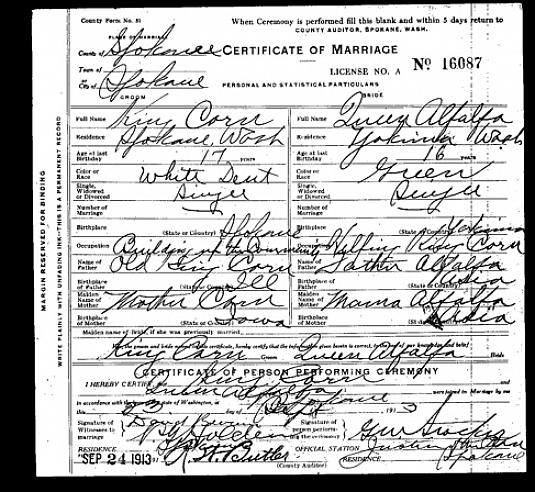 County Form No. 51
When Ceremony is performed fill this blank and within 5 days return to
COUNTY AUDITOR, SPOKANE, WASH.
PLACE OF MARRIAGE
County of Spokane
CERTIFICATE OF MARRIAGE
Town of
LICENSE NO. A Nº 16087
City of Spokane
PERSONAL AND STATISTICAL PARTICULARS
GROOM BRIDE
Full Name King Corn Full Name Queen Alfalfa
Residence Spokane, Wash Residence Yakima Wash
Age at last Birthday 17 years Age at last Birthday 16 years
Color or Race White Dent Color or Race Green
Single, Widowed or Divorced Single Single, Widowed or Divorced Single
Number of Marriage Number of Marriage
Birthplace (State or Country) Spokane Birthplace (State or Country) Yakima
Occupation Building up the Community Occupation Helping King Corn
Name of Father Old King Corn Name of Father Father Alfalfa
Birthplace of Father (State or Country) Ill Birthplace of Father
Maiden Name of Mother Mother Corn Maiden Name of Mother Mama Alfalfa
Birthplace of Mother (State or Country) Iowa Birthplace of Mother
Maiden name of bride, if she was previously married
King Corn Groom Queen Alfalfa Bride
CERTIFICATE OF PERSON PERFORMING CEREMONY
I HEREBY CERTIFY, that King Corn and
Queen Alfalfa were joined in Marriage by me
in accordance with the laws of the State of Washington, at Spokane
this 23 day of Sept 1913
Signature of Witnesses to marriage
Signature of person performing the ceremony
RESIDENCE Spokane OFFICIAL STATION
SEP 24 1913 Butler RESIDENCE Spokane
(County Auditor)
MARGIN RESERVED FOR BINDING
WRITE PLAINLY WITH UNFADING INK—THIS IS A PERMANENT RECORD